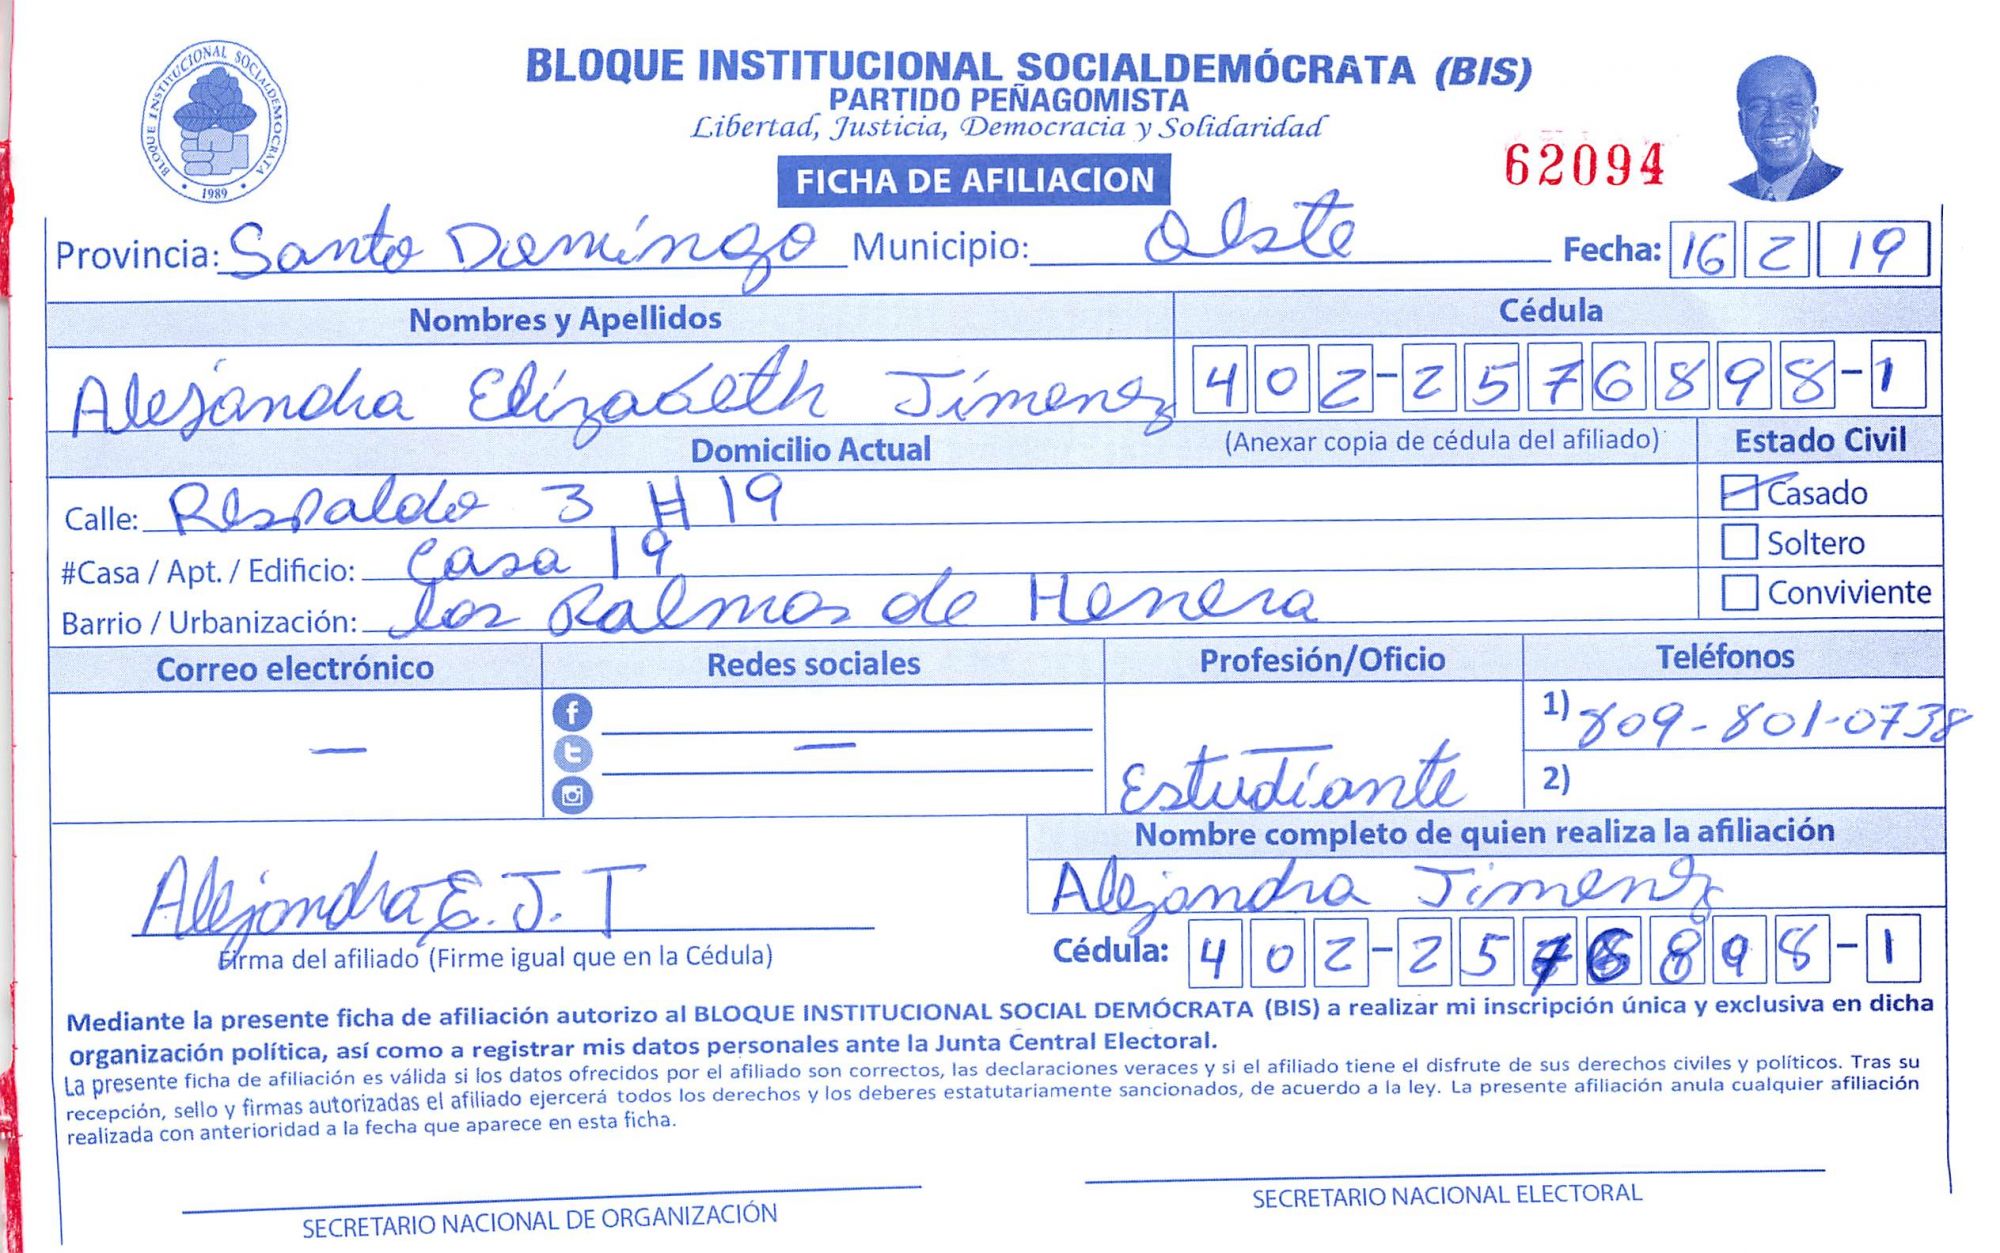 BLOQUE INSTITUCIONAL SOCIALDEMÓCRATA (BIS)
PARTIDO PEÑAGOMISTA
Libertad, Justicia, Democracia y Solidaridad
BLOQUE INSTITUCIONAL SOCIALDEMOCRATA
1989
62094
FICHA DE AFILIACION
Provincia: Santo Domingo Municipio: Oeste Fecha: 16 2 19
Nombres y Apellidos Cédula
Alejandra Elizabeth Jimenez 402-2576898-1
Domicilio Actual (Anexar copia de cédula del afiliado) Estado Civil
Calle: Respaldo 3 # 19 Casado
#Casa / Apt. / Edificio: Casa 19 Soltero
Barrio / Urbanización: los Palmas de Herrera Conviviente
Correo electrónico Redes sociales Profesión/Oficio Teléfonos
— — Estudiante 1) 809-801-0738
2)
Nombre completo de quien realiza la afiliación
Alejandra E. J. T Alejandra Jimenez
Firma del afiliado (Firme igual que en la Cédula) Cédula: 402-2576898-1
Mediante la presente ficha de afiliación autorizo al BLOQUE INSTITUCIONAL SOCIAL DEMÓCRATA (BIS) a realizar mi inscripción única y exclusiva en dicha
organización política, así como a registrar mis datos personales ante la Junta Central Electoral.
La presente ficha de afiliación es válida si los datos ofrecidos por el afiliado son correctos, las declaraciones veraces y si el afiliado tiene el disfrute de sus derechos civiles y políticos. Tras su
recepción, sello y firmas autorizadas el afiliado ejercerá todos los derechos y los deberes estatutariamente sancionados, de acuerdo a la ley. La presente afiliación anula cualquier afiliación
realizada con anterioridad a la fecha que aparece en esta ficha.
SECRETARIO NACIONAL DE ORGANIZACIÓN SECRETARIO NACIONAL ELECTORAL